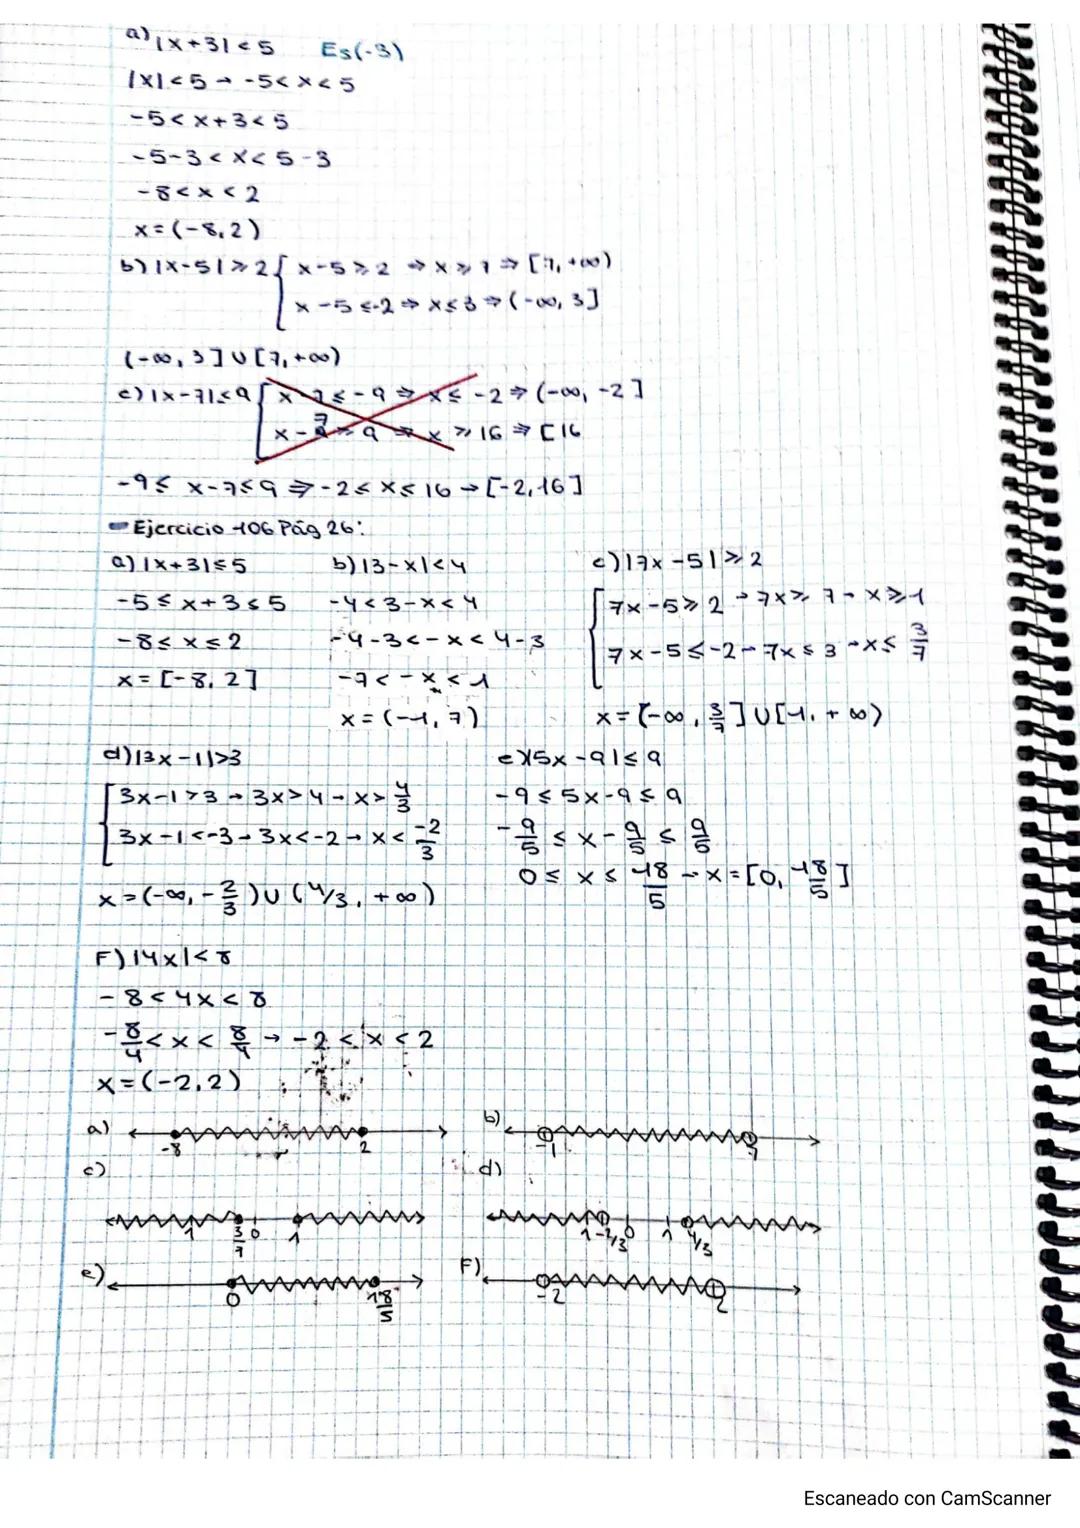 a) |x+3| < 5 Es(-3)
|x| < 5 → -5 < x < 5
-5 < x+3 < 5
-5-3 < x < 5-3
-8 < x < 2
x = (-8, 2)
b) |x-5| ≥ 2 { x-5 ≥ 2 ⇒ x ≥ 7 ⇒ [7, +∞)
x-5 ≤ -2 ⇒ x ≤ 3 ⇒ (-∞, 3]
(-∞, 3] ∪ [7, +∞)
c) |x-7| ≤ 9 { x-7 ≤ -9 ⇒ x ≤ -2 ⇒ (-∞, -2]
x-7 ≥ 9 ⇒ x ≥ 16 ⇒ [16
-9 ≤ x-7 ≤ 9 ⇒ -2 ≤ x ≤ 16 → [-2, 16]
Ejercicio 106 Pág 26:
a) |x+3| ≤ 5
-5 ≤ x+3 ≤ 5
-8 ≤ x ≤ 2
x = [-8, 2]
b) |3-x| < 4
-4 < 3-x < 4
-4-3 < -x < 4-3
-7 < -x < 1
x = (-1, 7)
c) |7x-5| ≥ 2
7x-5 ≥ 2 → 7x ≥ 7 → x ≥ 1
7x-5 ≤ -2 → 7x ≤ 3 → x ≤ 3/7
x = (-∞, 3/7] ∪ [1, +∞)
d) |3x-1| > 3
3x-1 > 3 → 3x > 4 → x > 4/3
3x-1 < -3 → 3x < -2 → x < -2/3
x = (-∞, -2/3) ∪ (4/3, +∞)
e) |5x-9| ≤ 9
-9 ≤ 5x-9 ≤ 9
-9/5 ≤ x - 9/5 ≤ 9/5
0 ≤ x ≤ 18/5 → x = [0, 18/5]
F) |4x| < 8
-8 < 4x < 8
-8/4 < x < 8/4 → -2 < x < 2
x = (-2, 2)
a) -8 2
b) -1 7
c) 1 3/7 0 1
d) 1 -2/3 0 1 4/3
e) 0 18/5
F) -2 2
Escaneado con CamScanner